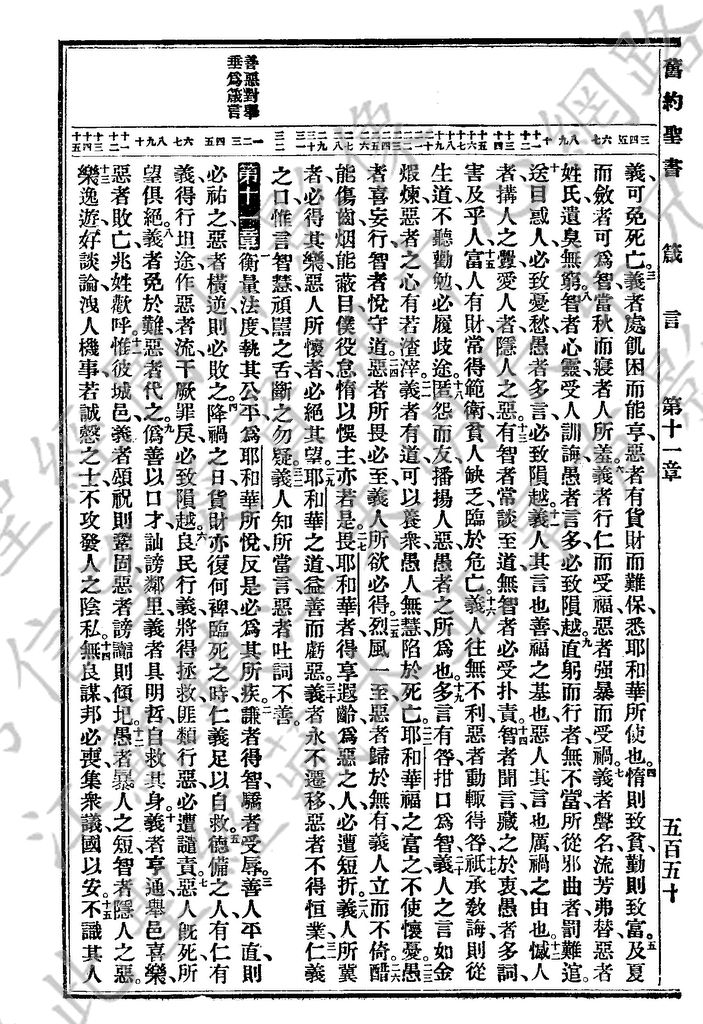 舊約聖書 箴言 第十一章 五百五十
善惡對擧
垂爲箴言
義可免死亡、三義者處飢困而能亨、惡者有貨財而難保、悉耶和華所使也、四惰則致貧、勤則致富、五及夏
而斂者可爲智、當秋而寢者人所羞、六義者行仁而受福、惡者强暴而受禍、七義者聲名流芳弗替、惡者
姓氏遺臭無窮、八智者心靈受人訓誨、愚者言多必致隕越、九直躬而行者無不當、所從邪曲者罰難逭、
十送目惑人必致憂愁、愚者多言必致隕越、十一義人其言也善福之基也、惡人其言也厲禍之由也、十二憾
者搆人之釁、愛人者隱人之惡、十三有智者常談至道、無智者必受扑責、十四智者聞言藏之於衷、愚者多詞、
害及乎人、十五富人有財常得範衛、貧人缺乏臨於危亡、十六義人往無不利、惡者動輒得咎、十七祇承敎誨則從
生道、不聽勸勉必履歧途、十八匿怨而友、播揚人惡、愚者之所爲也、十九多言有咎、拑口爲智、二十義人之言如金
煆煉、惡者之心有若渣滓、二一義者有道可以養衆、愚人無慧陷於死亡、二二耶和華福之富之、不使懷憂、二三愚
者喜妄行、智者悅守道、二四惡者所畏必至、義人所欲必得、二五烈風一至、惡者歸於無有、義人立而不倚、二六醋
能傷齒、烟能蔽目、僕役怠惰以悞主亦若是、二七畏耶和華者得享遐齡、爲惡之人必遭短折、二八義人所冀
者必得其樂、惡人所懷者必絕其望、二九耶和華之道、益善而虧惡、三十義者永不遷移、惡者不得恒業、三一仁義
之口惟言智慧、頑嚚之舌斷之勿疑、三二義人知所當言、惡者吐詞不善。
第十一章 一衡量法度執其公平、爲耶和華所悅、反是必爲其所疾、二謙者得智、驕者受辱、三善人平直則
必祐之、惡者橫逆則必敗之、四降禍之日、貨財亦復何裨、臨死之時、仁義足以自救、五德備之人有仁有
義、得行坦途、作惡者流干厥罪戾、必致隕越、六良民行義、將得拯救、匪類行惡、必遭譴責、七惡人旣死、所
望俱絕、八義者免於難、惡者代之、九僞善以口才訕謗鄰里、義者具明哲自救其身、十義者亨通、舉邑喜樂、
惡者敗亡、兆姓歡呼、十一惟彼城邑、義者頌祝則鞏固、惡者謗讟則傾圮、十二愚者暴人之短、智者隱人之惡、
十三樂逸遊、好談論、洩人機事、若誠慤之士、不攻發人之陰私、十四無良謀、邦必喪、集衆議、國以安、十五不識其人